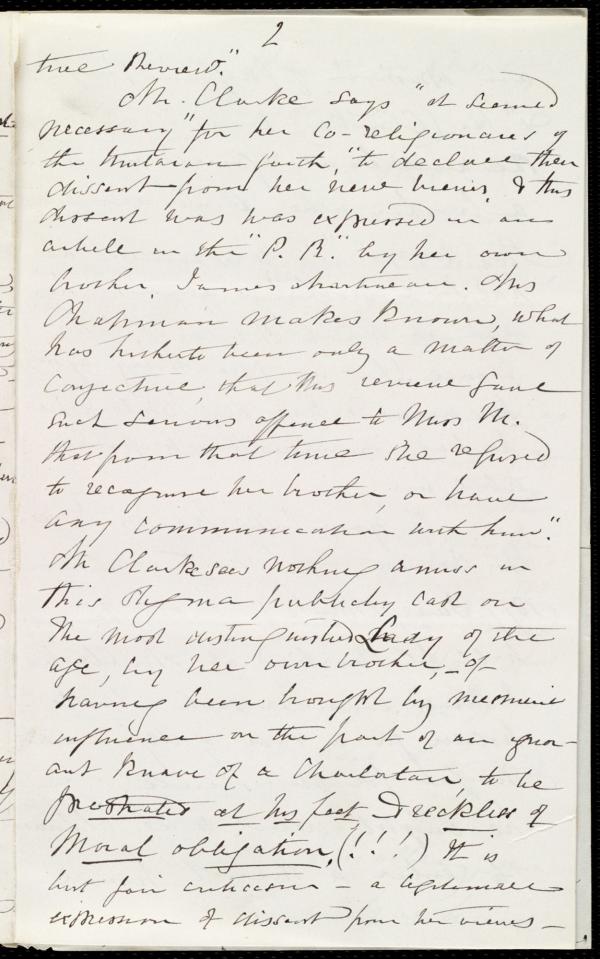 2
true Review."
Mr. Clarke says "it seemed
necessary" for her co-religionaries of
the Unitarian faith, "to declare their
dissent from her new views, & this
dissent was was expressed in an
article in the "P. R." by her own
brother, James Martineau. Mrs
Chapman makes known, what
has hitherto been only a matter of
conjecture, that this review gave
such serious offence to Miss M.
that from that time she refused
to recognise her brother, or have
any communication with him".
Mr Clarke sees nothing amiss in
this stigma publicly cast on
the most distinguished Lady of the
age, by her own brother, – of
having been brought by mesmeric
influence on the part of an ignor-
ant Knave of a Charlatan, to be
prostrated at his feet & reckless of
Moral obligation, (!!!) It is
but fair criticism – a legitimate
expression of dissent from her views –